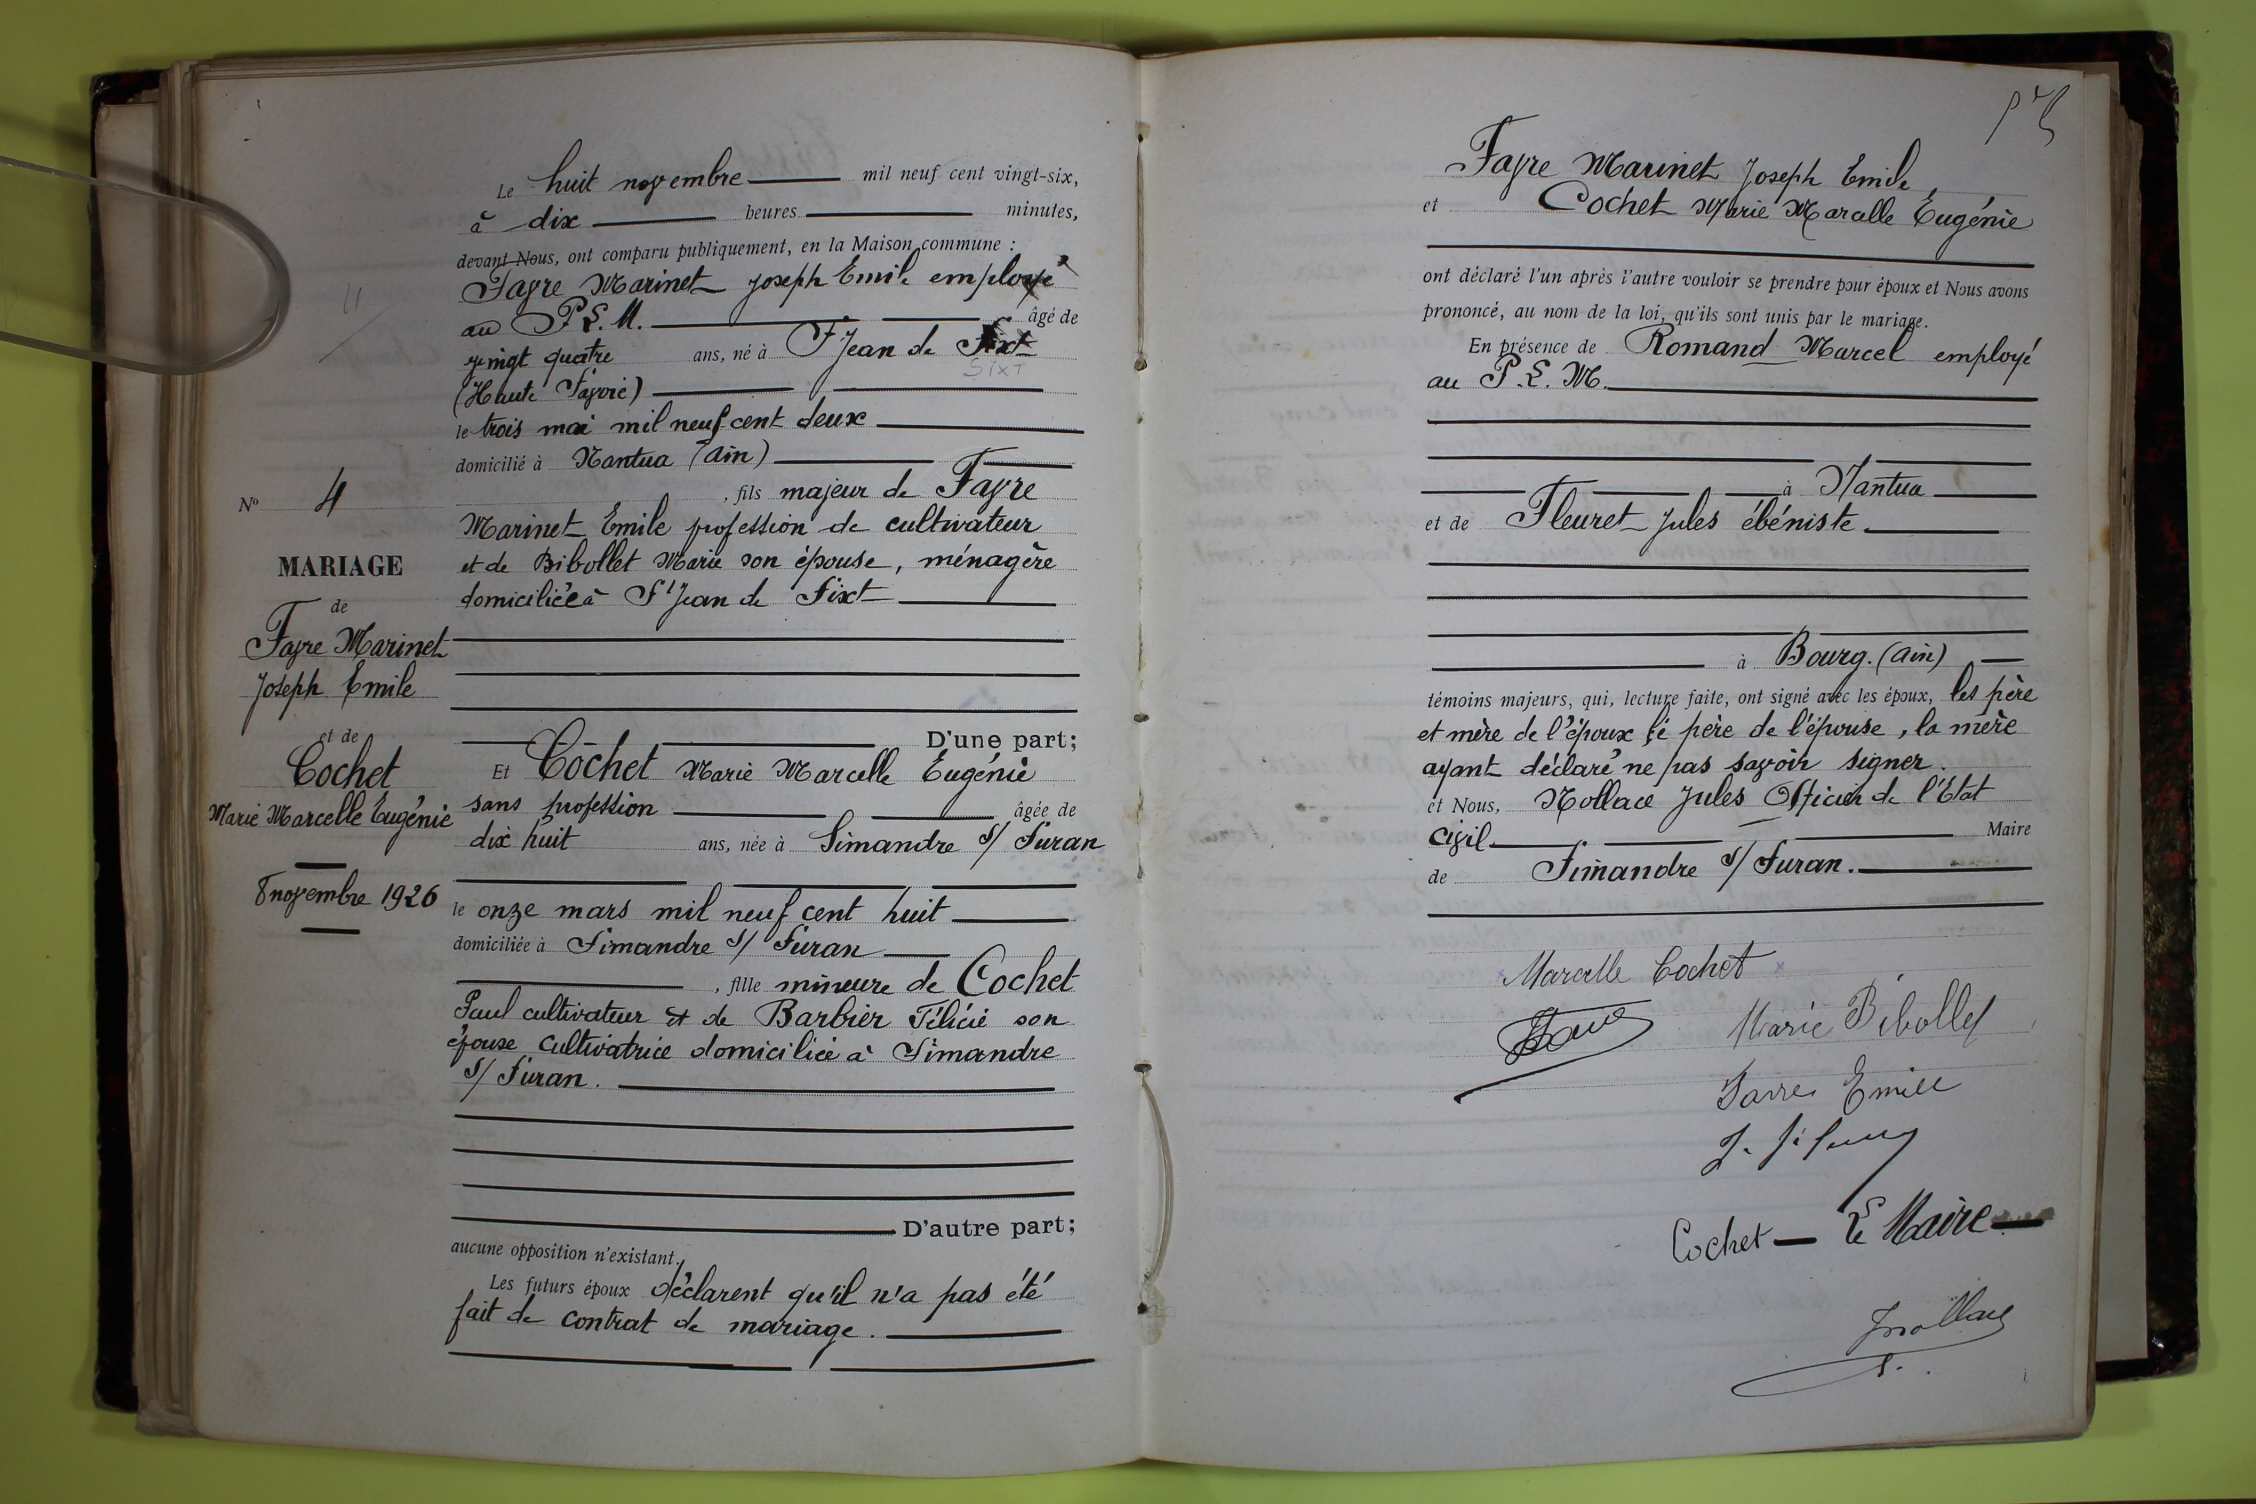 Le huit novembre mil neuf cent vingt-six,
à dix heures minutes,
devant Nous, ont comparu publiquement, en la Maison commune :
Favre Marinet Joseph Emile employé
au P.L.M. âgé de
vingt quatre ans, né à St Jean de Sixt
SIXT
(Haute Savoie)
le trois mai mil neuf cent deux
domicilié à Nantua (Ain)
, fils majeur de Favre
Marinet Emile profession de cultivateur
et de Bibollet Marie son épouse, ménagère
domiciliée à St Jean de Sixt
D'une part;
Et Cochet Marie Marcelle Eugénie
sans profession âgée de
dix huit ans, née à Simandre s/ Suran
le onze mars mil neuf cent huit
domiciliée à Simandre s/ Suran
, fille mineure de Cochet
Paul cultivateur et de Barbier Félicie son
épouse cultivatrice domiciliée à Simandre
s/ Suran.
D'autre part;
aucune opposition n'existant.
Les futurs époux déclarent qu'il n'a pas été
fait de contrat de mariage.
No 4
MARIAGE
de
Favre Marinet
Joseph Emile
et de
Cochet
Marie Marcelle Eugénie
8 novembre 1926
Favre Marinet Joseph Emile
et Cochet Marie Marcelle Eugénie
ont déclaré l'un après l'autre vouloir se prendre pour époux et Nous avons
prononcé, au nom de la loi, qu'ils sont unis par le mariage.
En présence de Romand Marcel employé
au P.L.M.
à Nantua
et de Fleuret Jules ébéniste
à Bourg. (Ain)
témoins majeurs, qui, lecture faite, ont signé avec les époux, les père
et mère de l'époux, le père de l'épouse, la mère
ayant déclaré ne pas savoir signer.
et Nous, Nollace Jules Officier de l'Etat
civil Maire
de Simandre s/ Suran.
Marcelle Cochet
Favre
Marie Bibollet
Favre Emile
Cochet
Le Maire